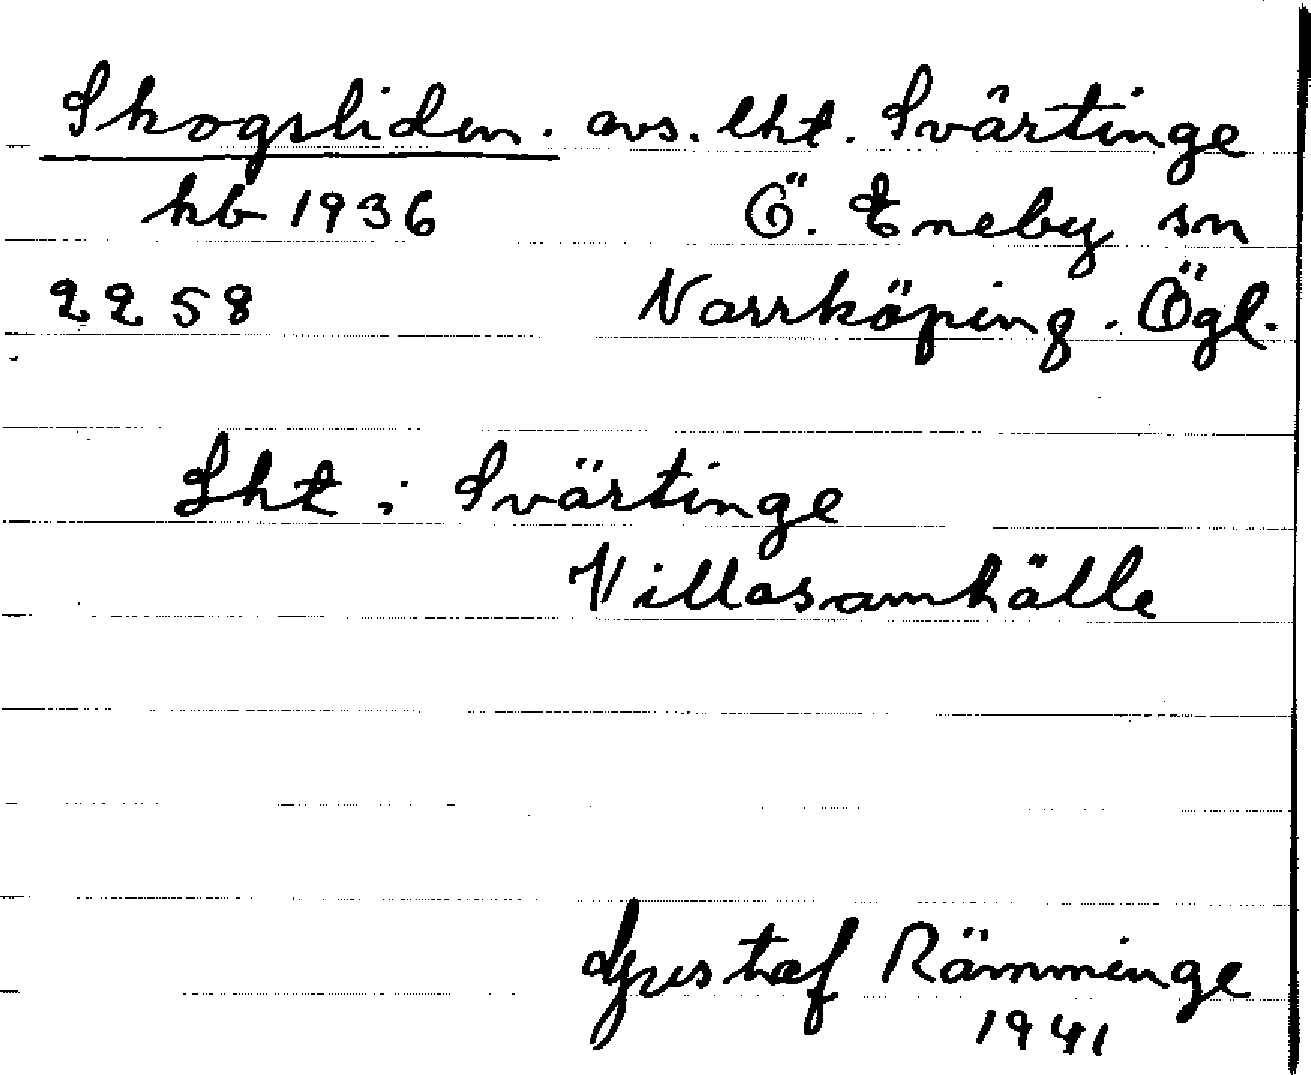 Skogsliden. avs. lht. Svärtinge
kb 1936 Ö. Eneby sn
2258 Norrköping. Ögl.
Lht i Svärtinge
Villasamhälle
Gustaf Rämminge
1941